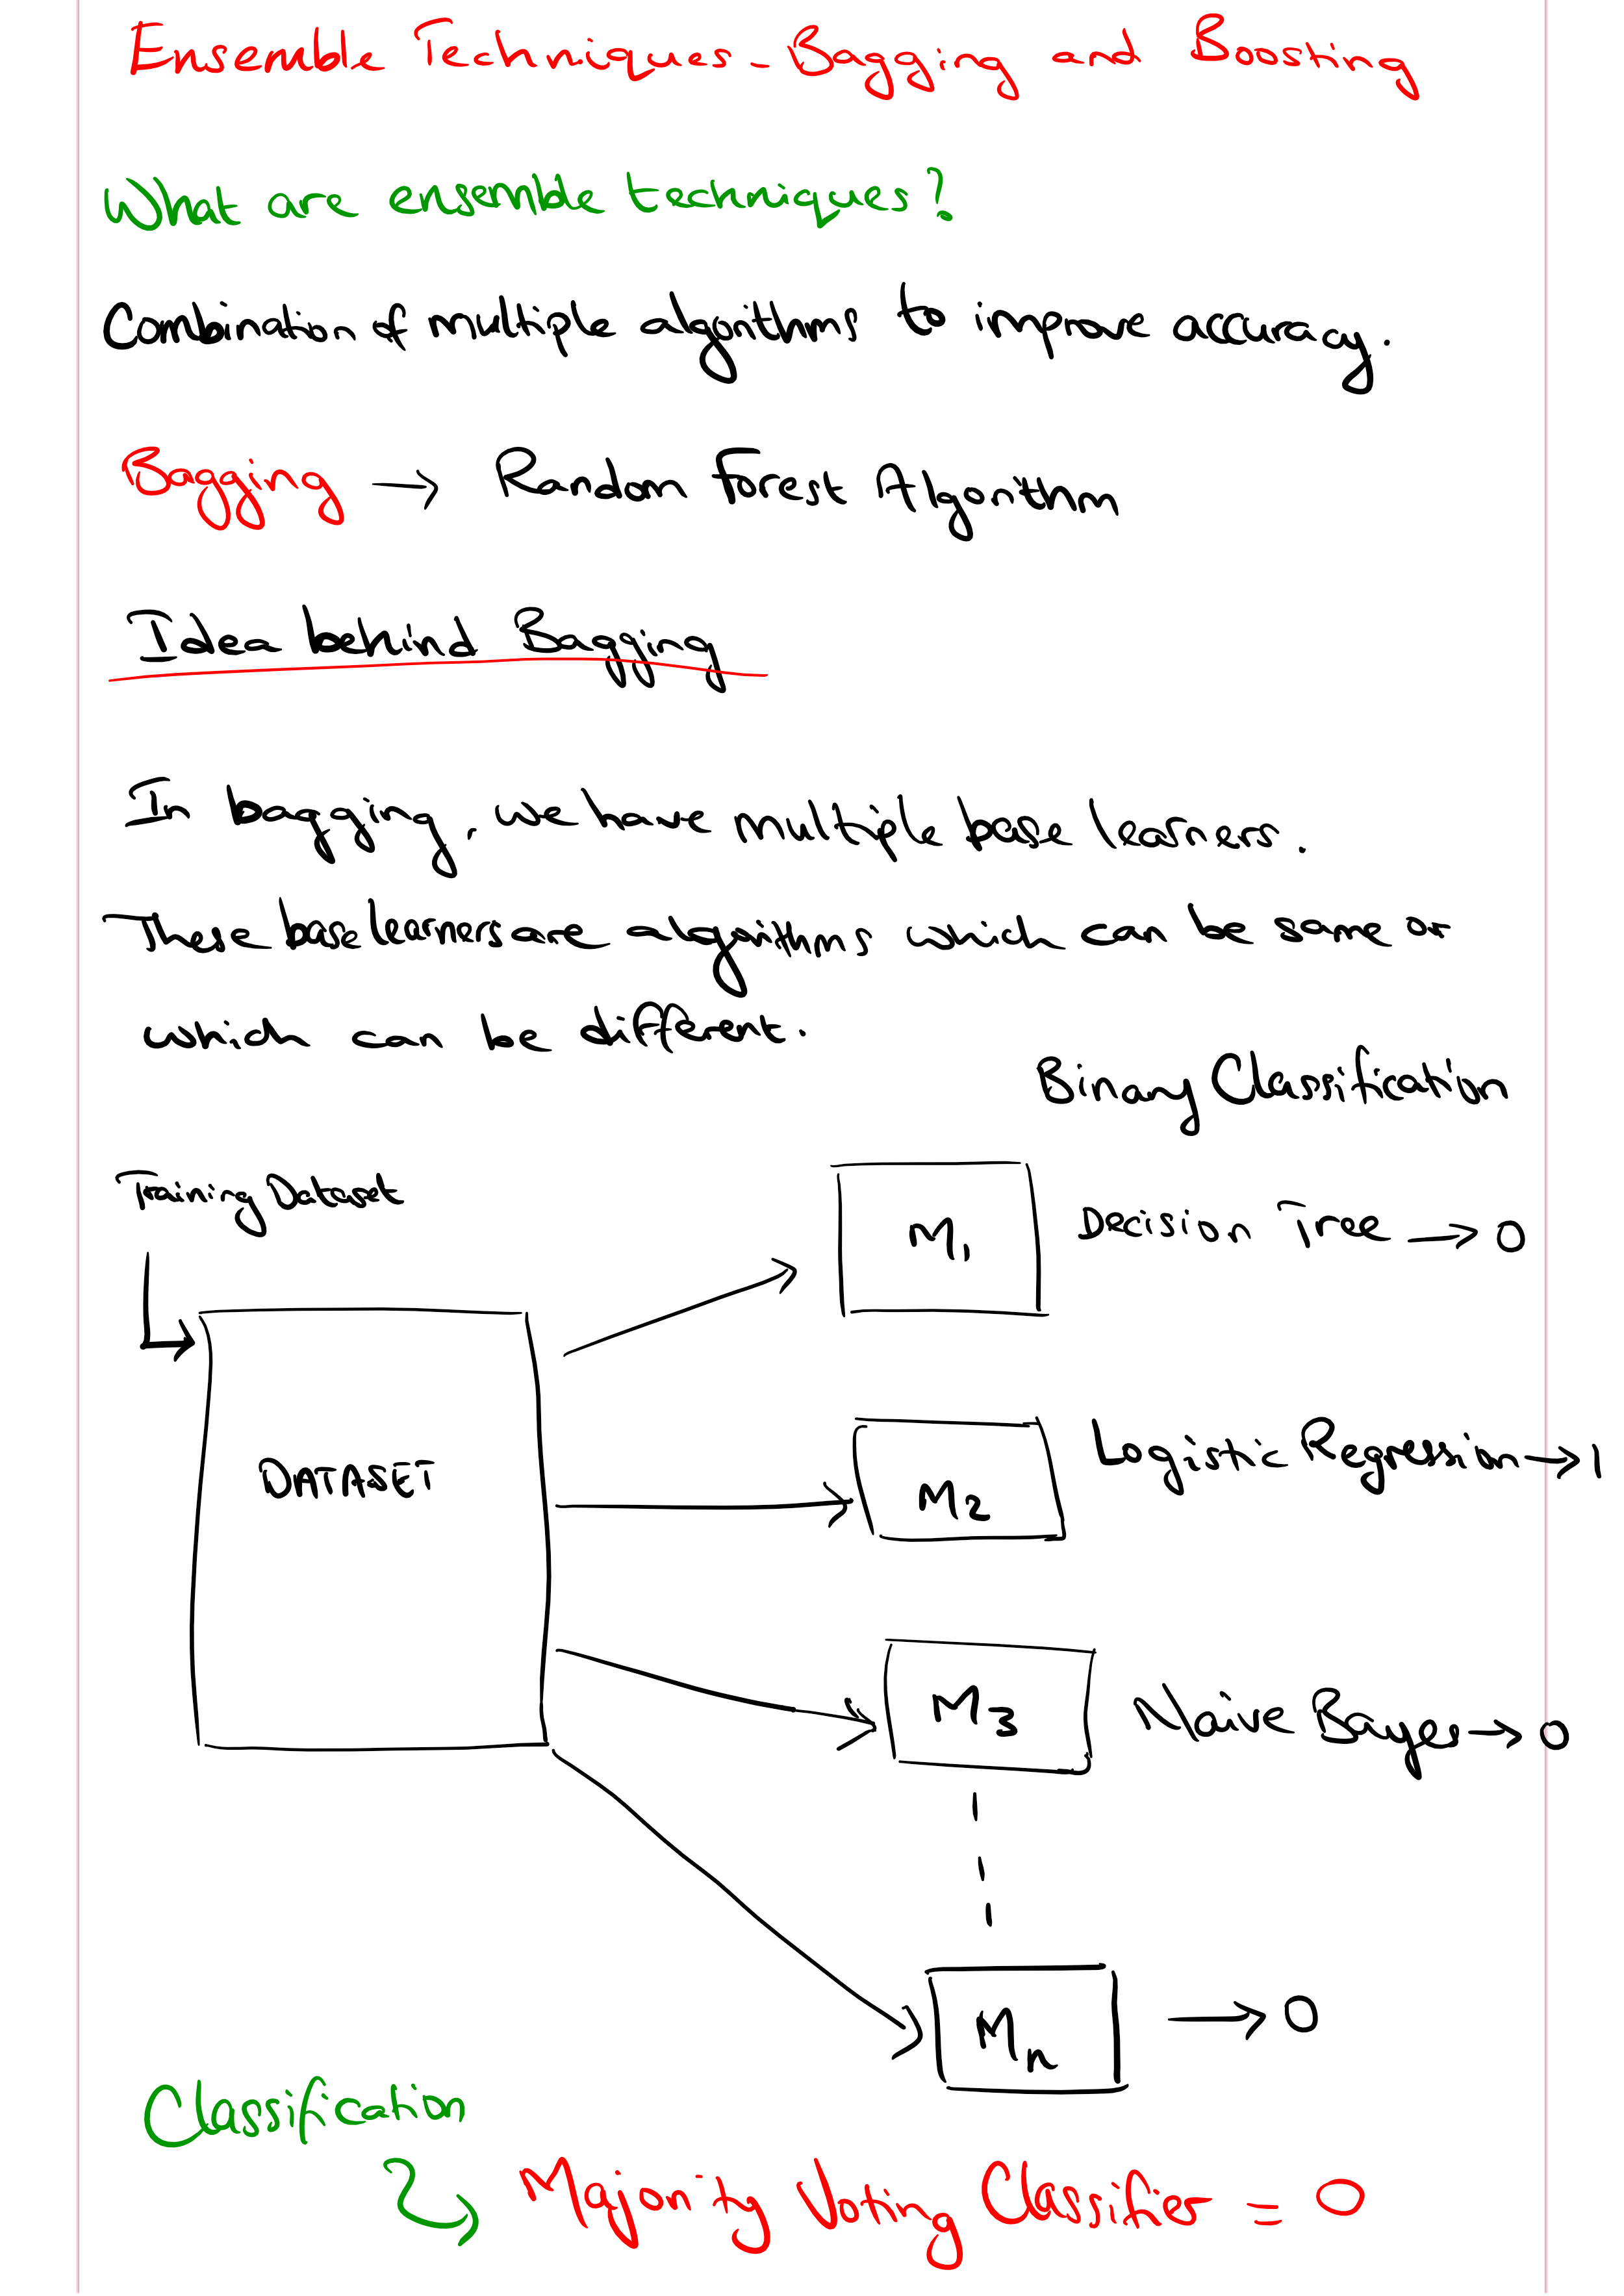 Ensemble Techniques - Bagging and Boosting
What are ensemble techniques?
Combination of multiple algorithms to improve accuracy.
Bagging → Random Forest Algorithm
Idea behind Bagging
In bagging, we have multiple base learners.
These base learners are algorithms which can be same or
which can be different.
Binary Classification
Training Dataset
M1 Decision Tree → 0
DATASET
M2 Logistic Regression → 1
M3 Naive Bayes → 0
Mn → 0
Classification
Majority Voting Classifier = 0